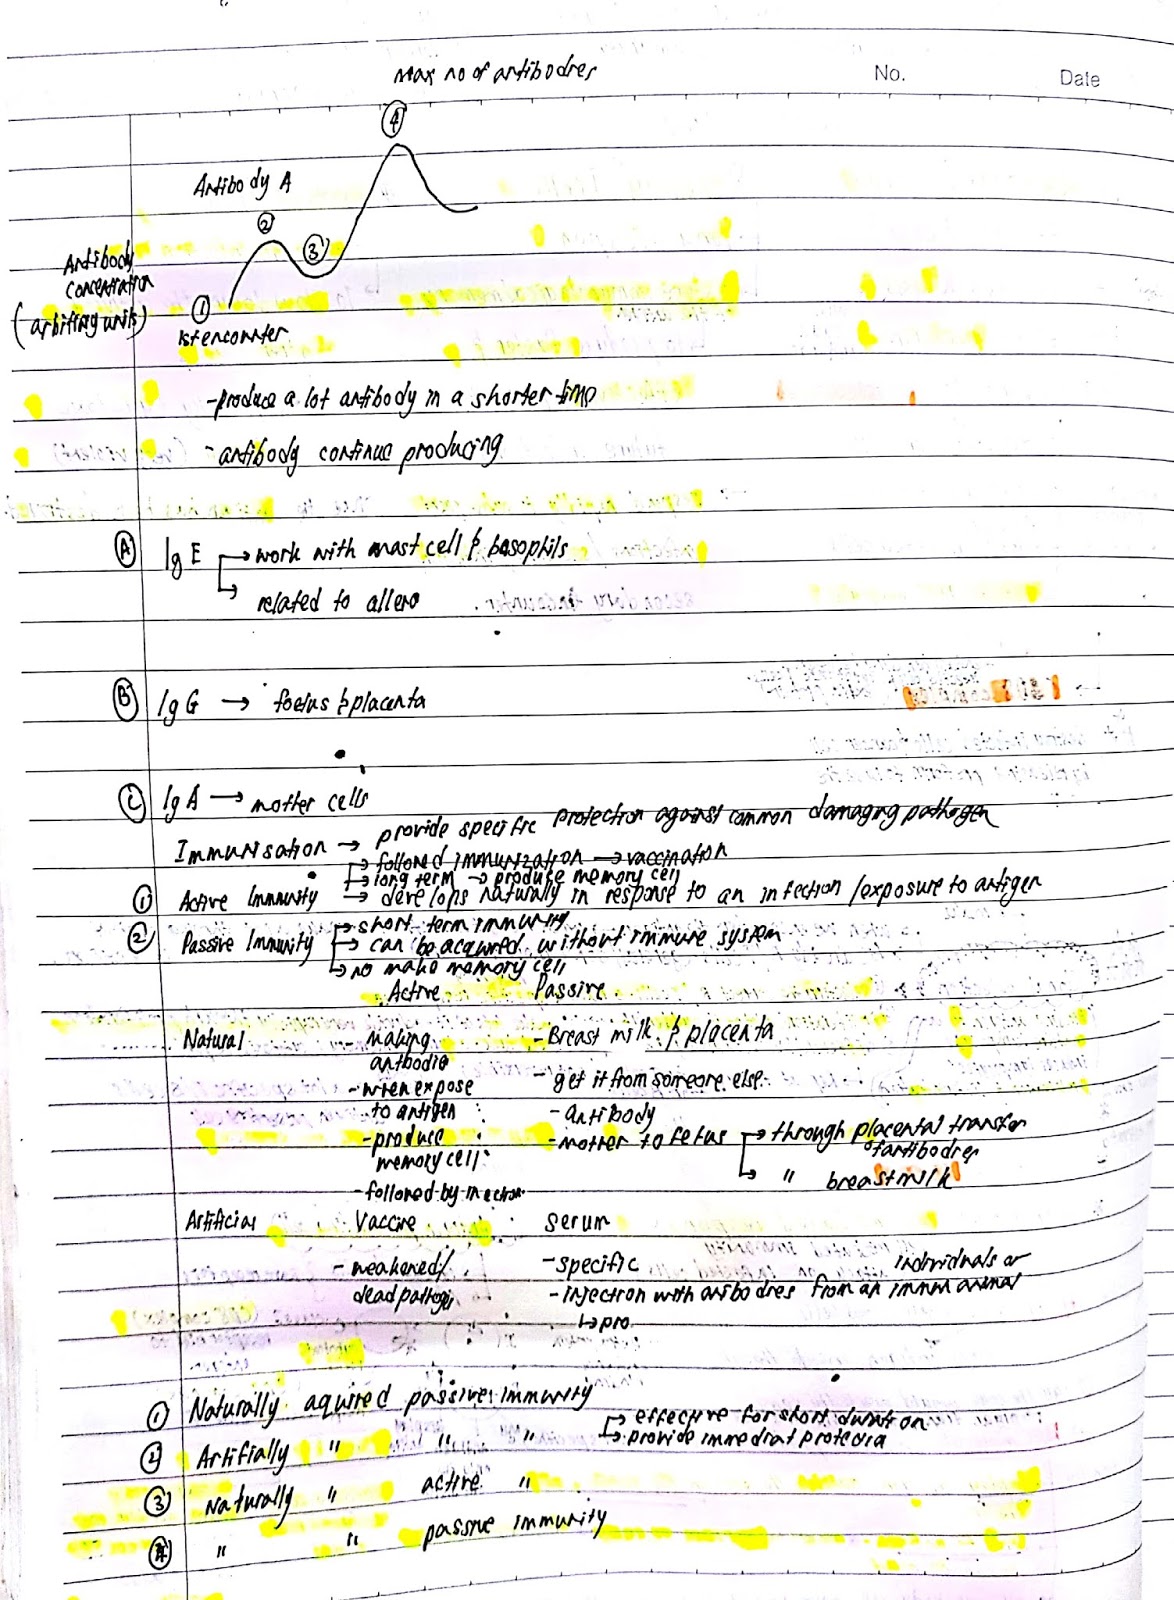 Max no of antibodies
No. Date
④
Antibody A
②
③
Antibody
concentration
(arbitrary units)
①
1st encounter
- produce a lot antibody in a shorter time
- antibody continue producing
Ⓐ IgE → work with mast cell & basophils
↳ related to allero
Ⓑ IgG → foetus & placenta
Ⓒ IgA → mother cells
Immunisation → provide specific protection against common damaging pathogen
↳ followed immunization → vaccination
↳ long term → produce memory cell
① Active Immunity → develops naturally in response to an infection / exposure to antigen
② Passive Immunity → short term immunity
→ can be acquired without immune system
↳ no make memory cell
Active Passive
Natural - making - Breast milk & placenta
antibodie
- when expose - get it from someone else
to antigen - antibody
- produce - mother to fetus → through placental transfer
memory cell of antibodies
↳ " breast milk
- followed by infection
Artificial Vaccine serum
- weakened/ - specific individuals or
dead pathogen - injection with antibodies from an immun animal
↳ pro
① Naturally aquired passive immunity
→ effective for short duration
② Artifially " " " ↳ provide immediat protectia
③ Naturally " active "
④ " " passive immunity